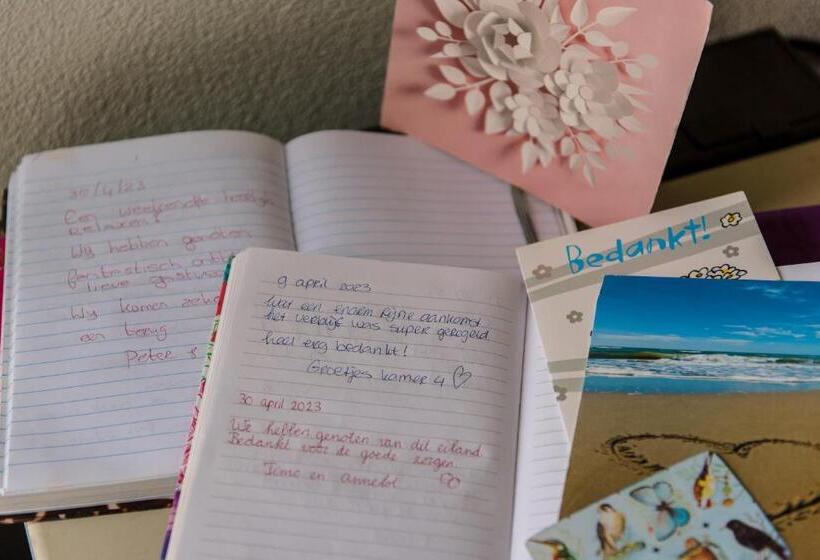 30/4/23
Een weekendje heerlijk
relaxen!
Wij hebben genoten.
fantastisch ontbijt
lieve gastvrouw
Wij komen zeker
een terug
Peter &
9 april 2023
Wat een enorm fijne aankomst
het verblijf was super geregeld
heel erg bedankt!
Groetjes kamer 4
30 april 2023
We hebben genoten van dit eiland.
Bedankt voor de goede zorgen.
Timo en annelot
Bedankt!